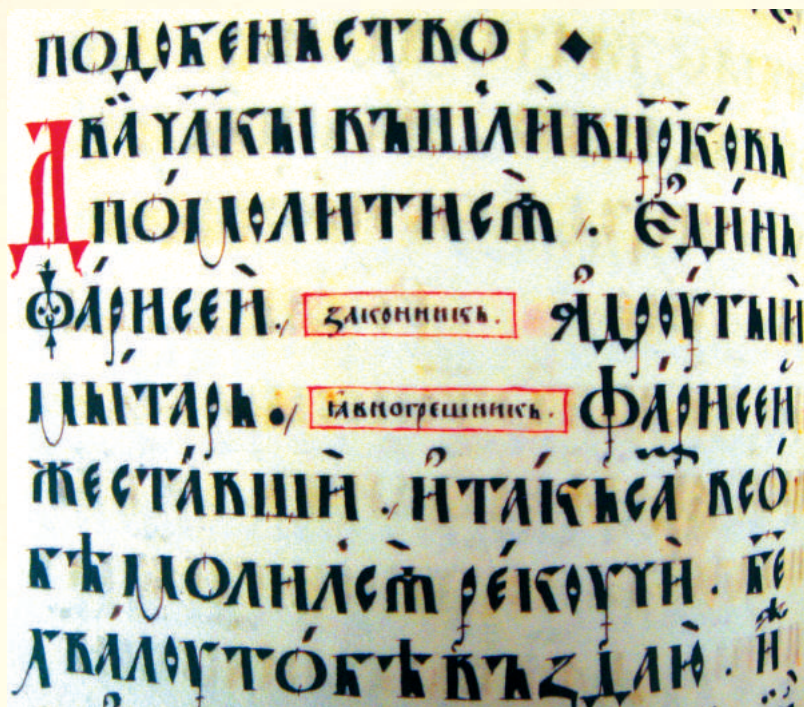 подобеньство
Два чл҃кы въшли в црк҃овь
помолитисѧ. единь
фарисей. законникъ. а другый
мытарь. ꙗвногрешникъ. фарисей
же ставши. и такъ сѧ в со
бѣ молилсѧ рекучи. б҃е
хвалоу тобѣ въздаю. иж